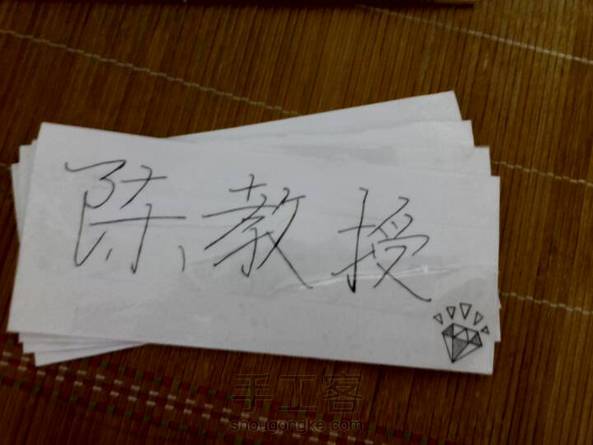 陈教授
手工客
shougongke.com